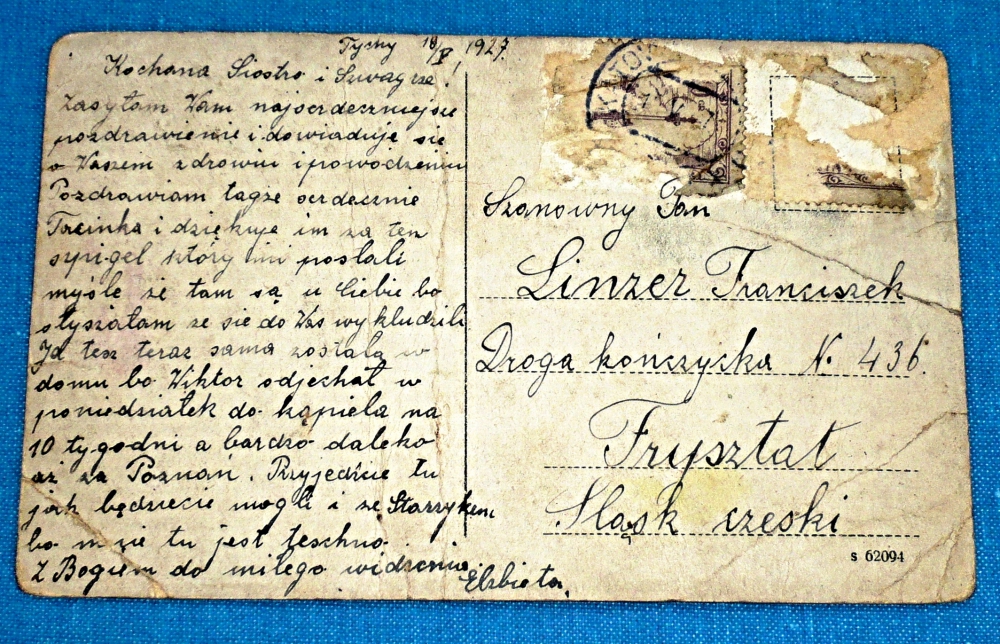 Tychy 18/V 1927.
Kochana Siostro i Szwagrze!
Zasyłam Wam najserdeczniejsze
pozdrawienie i dowiaduję się
o Waszem zdrowiu i powodzeniu
Pozdrawiam tagże serdecznie
Francinka i dziękuje im za ten
szpigel który mi posłali
myśle że tam są u Ciebie bo
słyszałam ze sie do Was wykludzili
Ja tesz teraz sama została w
domu bo Wiktor odjechał w
poniedziałek do kąpiela na
10 tygodni a bardzo daleko
aż za Poznań. Przyjedzcie tu
jak będziecie mogli i ze Starzykem
bo mnie tu jest teschno.
Z Bogiem do miłego widzenia
Elzbieta.
Szanowny Pan
Linzer Franciszek
Droga kończycka N. 436.
Frysztat
Sląsk czeski
s 62094